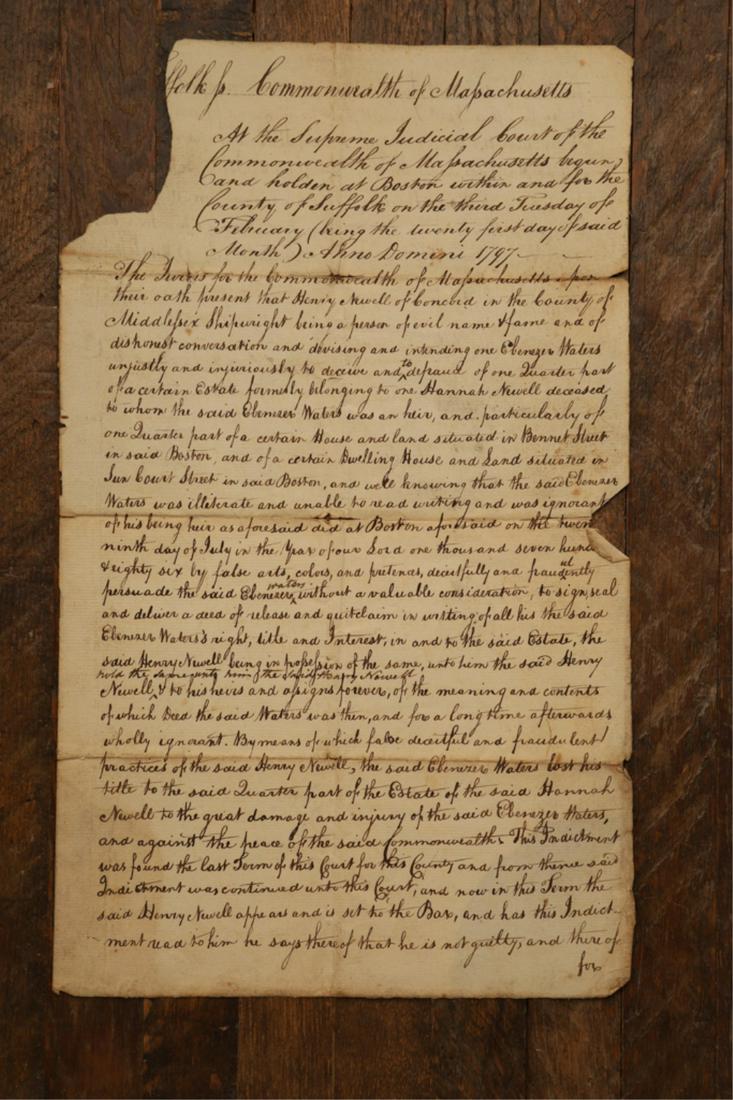 ffolk ss. Commonwealth of Massachusetts
At the Supreme Judicial Court of the
Commonwealth of Massachusetts begun
and holden at Boston within and for the
County of Suffolk on the third Tuesday of
February (being the twenty first day of said
Month) Anno Domini 1797.
The Jurors for the Commonwealth of Massachusetts upon
their oath present that Henry Newell of Concord in the County of
Middlesex Shipwright being a person of evil name & fame and of
dishonest conversation and devising and intending one Ebenezer Waters
unjustly and injuriously to deceive and to defraud of one Quarter part
of a certain Estate formerly belonging to one Hannah Newell deceased
to whom the said Ebenezer Waters was an heir, and particularly of
one Quarter part of a certain House and land situated in Bennet Street
in said Boston, and of a certain Dwelling House and Land situated in
Sun Court Street in said Boston, and well knowing that the said Ebenezer
Waters was illiterate and unable to read writing and was ignorant
of his being heir as aforesaid did at Boston aforesaid on the twen
ninth day of July in the Year of our Lord one thousand seven hund
& eighty six by false arts, colors, and pretences, deceitfully and fraudulently
persuade the said Ebenezer Waters without a valuable consideration, to sign, seal
and deliver a deed of release and quitclaim in writing of all his the said
Ebenezer Waters's right, title and Interest, in and to the said Estate, the
said Henry Newell being in possession of the same, unto him the said Henry
hold the same unto him the said Henry Newell
Newell, & to his heirs and assigns forever, of the meaning and contents
of which Deed the said Waters was then, and for a long time afterwards
wholly ignorant. By means of which false deceitful and fraudulent
practices of the said Henry Newell, the said Ebenezer Waters lost his
title to the said Quarter part of the Estate of the said Hannah
Newell to the great damage and injury of the said Ebenezer Waters,
and against the peace of the said Commonwealth. This Indictment
was found the last Term of this Court for this County and from thence said
Indictment was continued unto this Court, and now in this Term the
said Henry Newell appears and is set to the Bar, and has this Indict-
ment read to him he says thereof that he is not guilty, and thereof
for